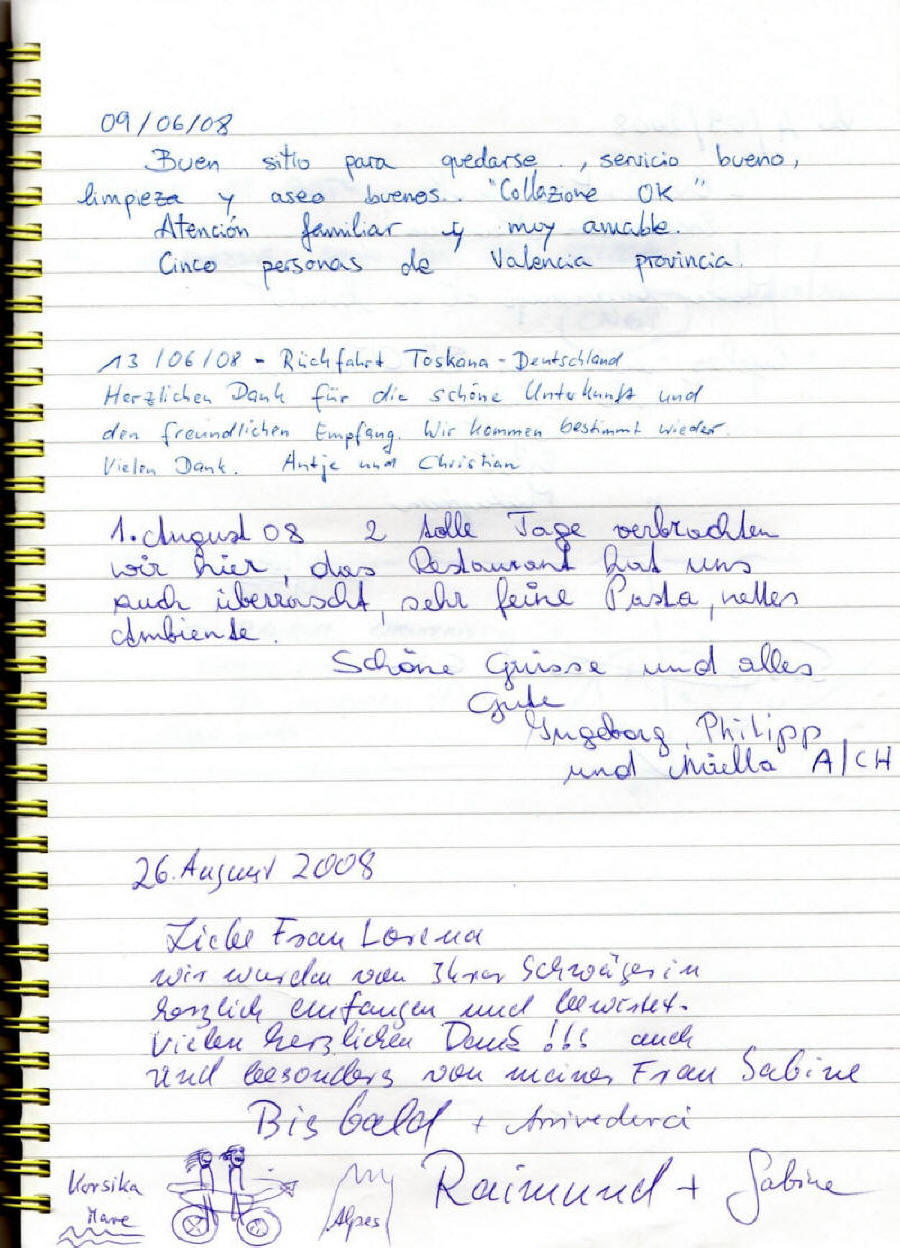 09/06/08
Buen sitio para quedarse , servicio bueno,
limpieza y aseo buenos.. "Collazione OK"
Atención familiar y muy amable.
Cinco personas de Valencia provincia.
13/06/08 - Rückfahrt Toskana - Deutschland
Herzlichen Dank für die schöne Unterkunft und
den freundlichen Empfang. Wir kommen bestimmt wieder.
Vielen Dank. Antje und Christian
1. August 08 2 tolle Tage verbrachten
wir hier, das Restaurant hat uns
auch überrascht, sehr feine Pasta, nettes
Ambiente.
Schöne Grüsse und alles
Gute
Ingeborg, Philipp
und A/CH
26. August 2008
Liebe Frau Lorena
wir wurden von Ihrer Schwägerin
herzlich emfangen und bewirtet.
Vielen herzlichen Dank !!! auch
und besonders von meiner Frau Sabine
Bis bald + Arrivederci
Raimund + Sabine
Korsika
Mare
Alpes